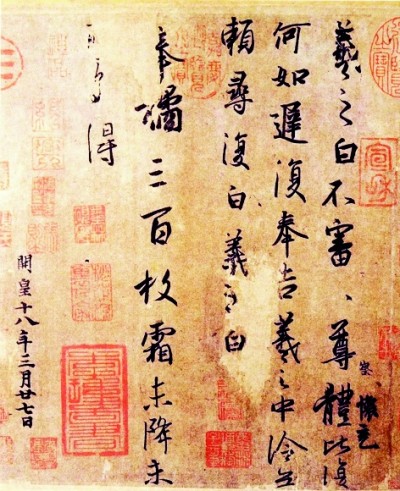 羲之白不審、尊體比復
察 懷充
何如遲復奉告羲之中冷無
賴尋復白羲之白
奉橘三百枚霜未降未
可多得
開皇十八年三月廿七日
宣和